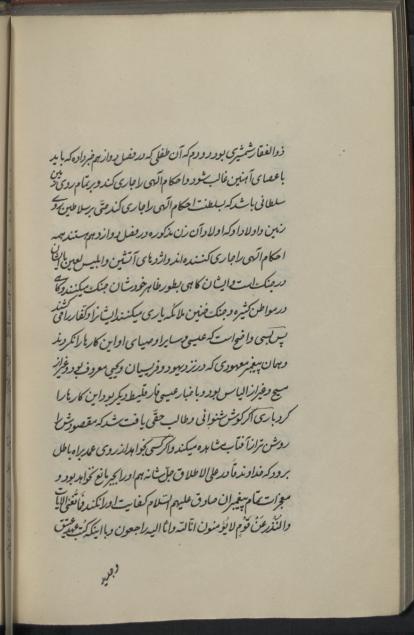 ذوالفقار شمشیری بود و دوم که آن طفلی که در فصل دوازدهم خبر داده که باید
با عصای آهنین غالب شود و احکام الهی را جاری کند و بر تمام روی زمین
سلطانی باشد که بسلطنت احکام الهی را جاری کند حتی بر سلاطین روی
زمین و اولاد او که اولاد آن زن مذکوره در فصل دوازدهم هستند همه
احکام الهی را جاری کننده اند و اژدهای آتشین و ابلیس لعین با ایشان
در جنک است و ایشان کاهی بطور ظاهر خودشان جنک میکنند و کاهی
در مواطن کثیره و جنک حنین ملائکه یاری میکنند ایشانرا و کفار را میکشند
پس کسی واضح است که عیسی و سایر اوصیای او این کارها را نکردند
و همان پیغمبر معهودی که در نزد یهود و فریسیان و یحیی معروف بود و غیر از
مسیح و غیر از الیاس بود و باخبار عیسی فارقلیط دیکر بود این کارها را
کرد باری اکر کوش شنوائی و طالب حقی یافت شد که مقصودش
روشن تر از آفتاب مشاهده میکند و اکر کسی نخواهد از روی عمد براه باطل
برود که خداوند قادر علی الاطلاق جل شانه هم او را بجبر مانع نخواهد بود و
معجزات تمام پیغمبران صادق علیهم السلام کفایت او را نکند فما تغنی الآیات
والنذر عن قوم لا یؤمنون انا لله و انا الیه راجعون و با اینکه کتب عهد عتیق
و جدید